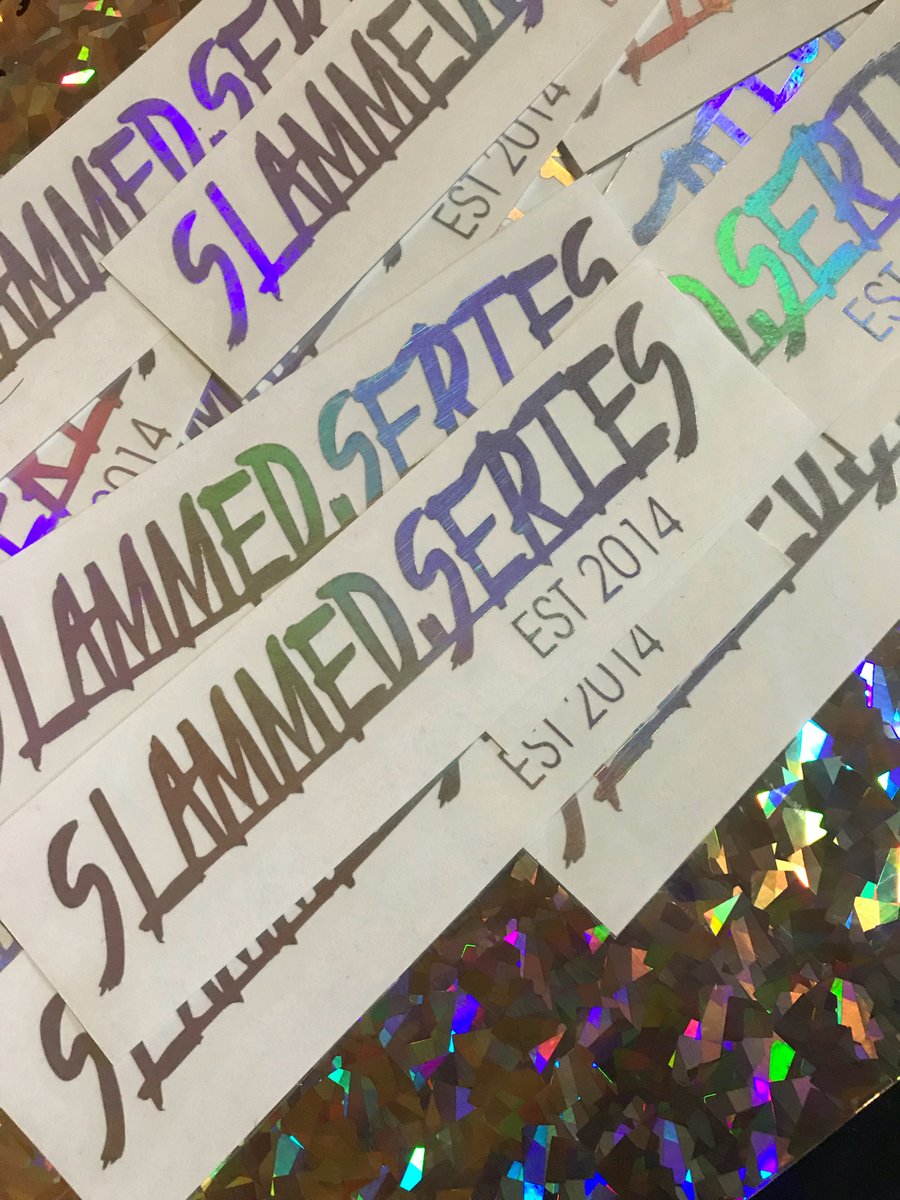 SLAMMED.SER
SLAMMED.
EST 2014
.SERIE
EST
2014
SLAMMED.SERIES
SLAMMED.SERIES
EST 2014
EST 2014